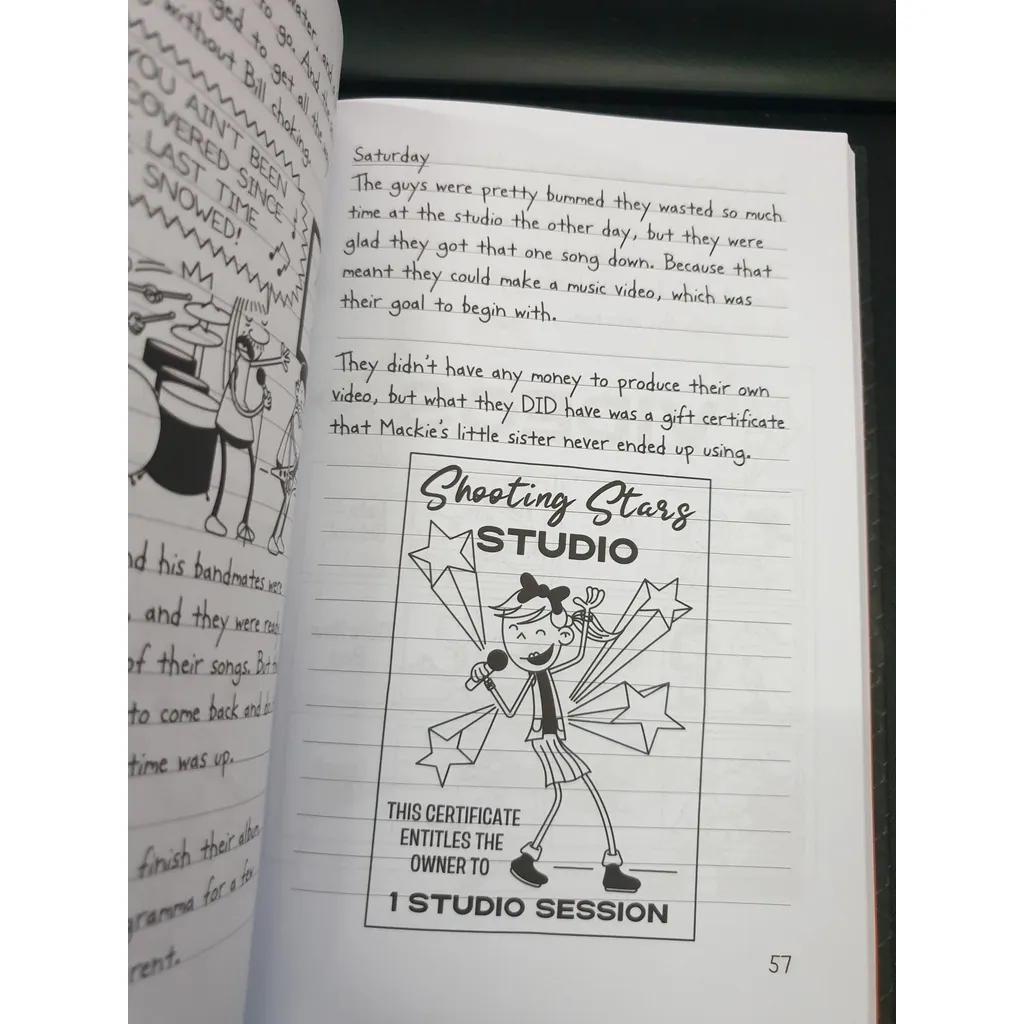 ater, and
to go. And the
ged to get all the
without Bill choking.
YOU AIN'T BEEN
COVERED SINCE
LAST TIME
SNOWED!
nd his bandmates were
, and they were
of their songs.
to come back and
time was up.
finish their
gramma for a
rent.
Saturday
The guys were pretty bummed they wasted so much
time at the studio the other day, but they were
glad they got that one song down. Because that
meant they could make a music video, which was
their goal to begin with.
They didn't have any money to produce their own
video, but what they DID have was a gift certificate
that Mackie's little sister never ended up using.
Shooting Stars
STUDIO
THIS CERTIFICATE
ENTITLES THE
OWNER TO
1 STUDIO SESSION
57